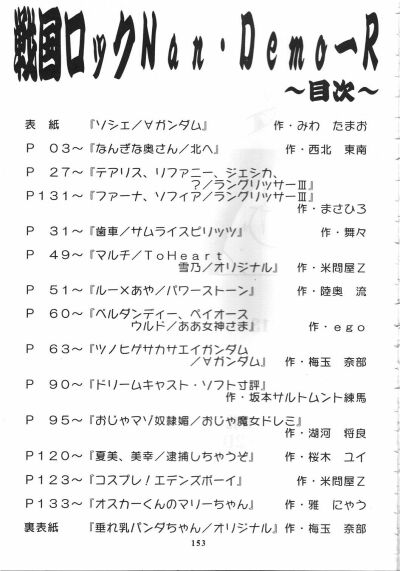 戦国ロックNan・Demo一R
〜目次〜
表 紙 『ソシエ／∀ガンダム』 作・みわ たまお
P 03〜『なんぎな奥さん／北へ』 作・西北 東南
P 27〜『テアリス、リファニー、ジェシカ、
？／ラングリッサーⅢ』
P131〜『ファーナ、ソフィア／ラングリッサーⅢ』
作・まさひろ
P 31〜『歯車／サムライスピリッツ』 作・舞々
P 49〜『マルチ／ToHeart
雪乃／オリジナル』 作・米問屋Z
P 51〜『ルー×あや／パワーストーン』 作・陸奥 流
P 60〜『ベルダンディー、ペイオース
ウルド／ああ女神さま』 作・ego
P 63〜『ツノヒゲサカサエイガンダム
／∀ガンダム』 作・梅玉 奈部
P 90〜『ドリームキャスト・ソフト寸評』
作・坂本サルトムント練馬
P 95〜『おじゃマゾ奴隷媚／おじゃ魔女ドレミ』
作・湖河 将良
P120〜『夏美、美幸／逮捕しちゃうぞ』 作・桜木 ユイ
P123〜『コスプレ！エデンズボーイ』 作・米問屋Z
P133〜『オスカーくんのマリーちゃん』 作・雅 にゃう
裏表紙 『垂れ乳パンダちゃん／オリジナル』作・梅玉 奈部
153